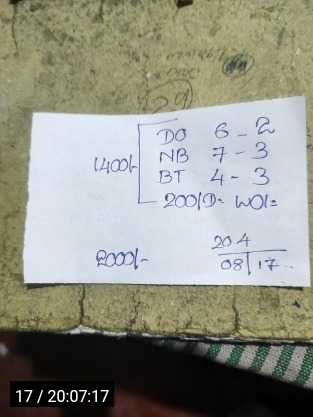 29
DO 6 - 2
1400/- NB 7 - 3
BT 4 - 3
200/D- WO/=
204
2000/- 08/17
17 / 20:07:17